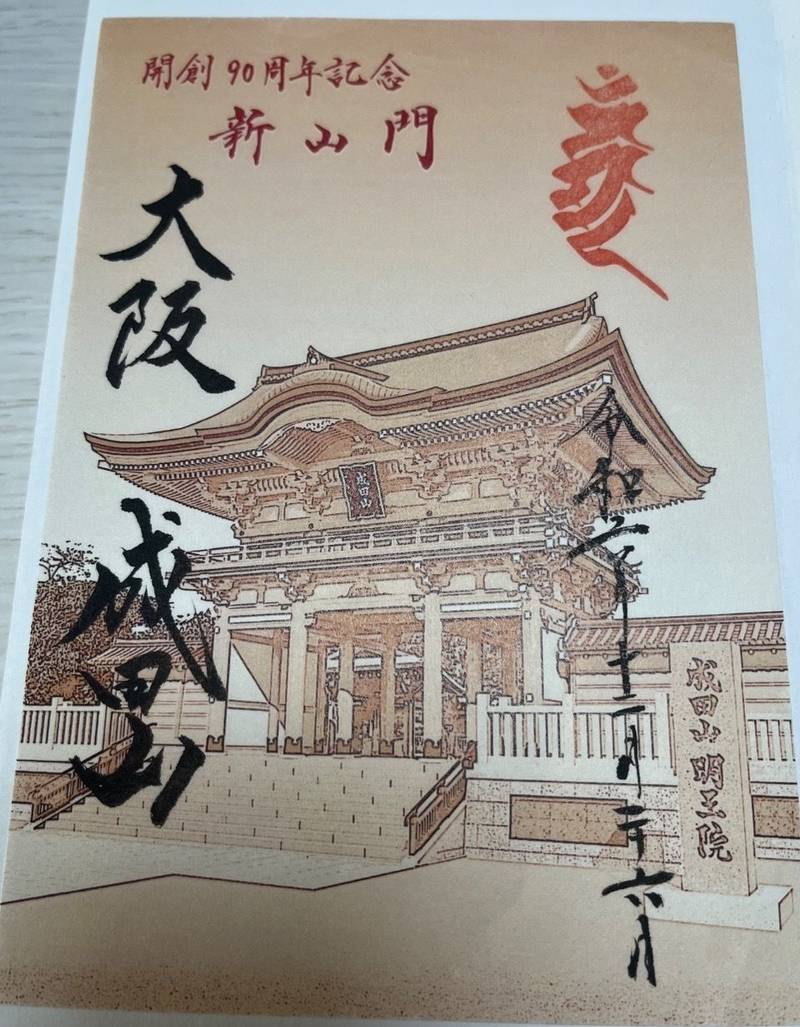 開創90周年記念
新山門
大阪
成田山
成田山
令和六年十二月二十六日
成田山明王院